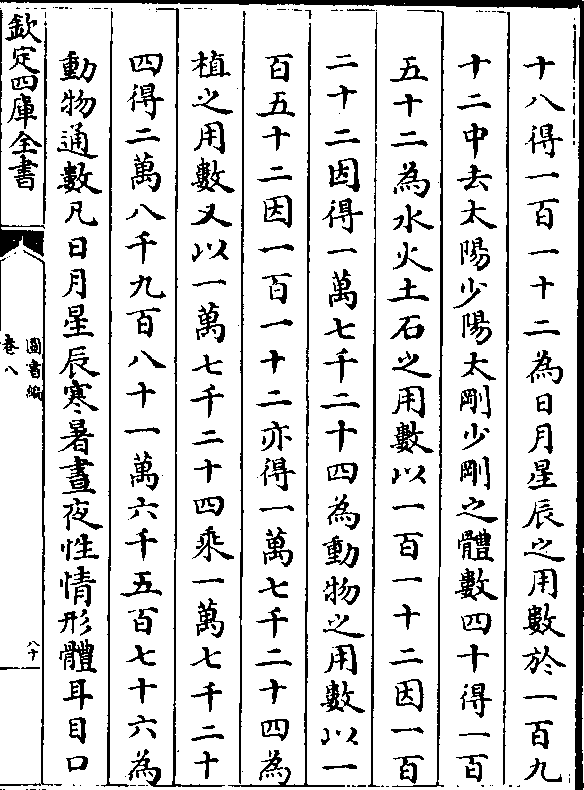 十八得一百一十二為日月星辰之用數於一百九
十二中去太陽少陽太剛少剛之體數四十得一百
五十二為水火土石之用數以一百一十二因一百
二十二因得一萬七千二十四為動物之用數以一
百五十二因一百一十二亦得一萬七千二十四為
植之用數又以一萬七千二十四乘一萬七千二十
四得二萬八千九百八十一萬六千五百七十六為
動物通數凡日月星辰寒暑晝夜性情形體耳目口
欽定四庫全書
圖書編
卷八
八十